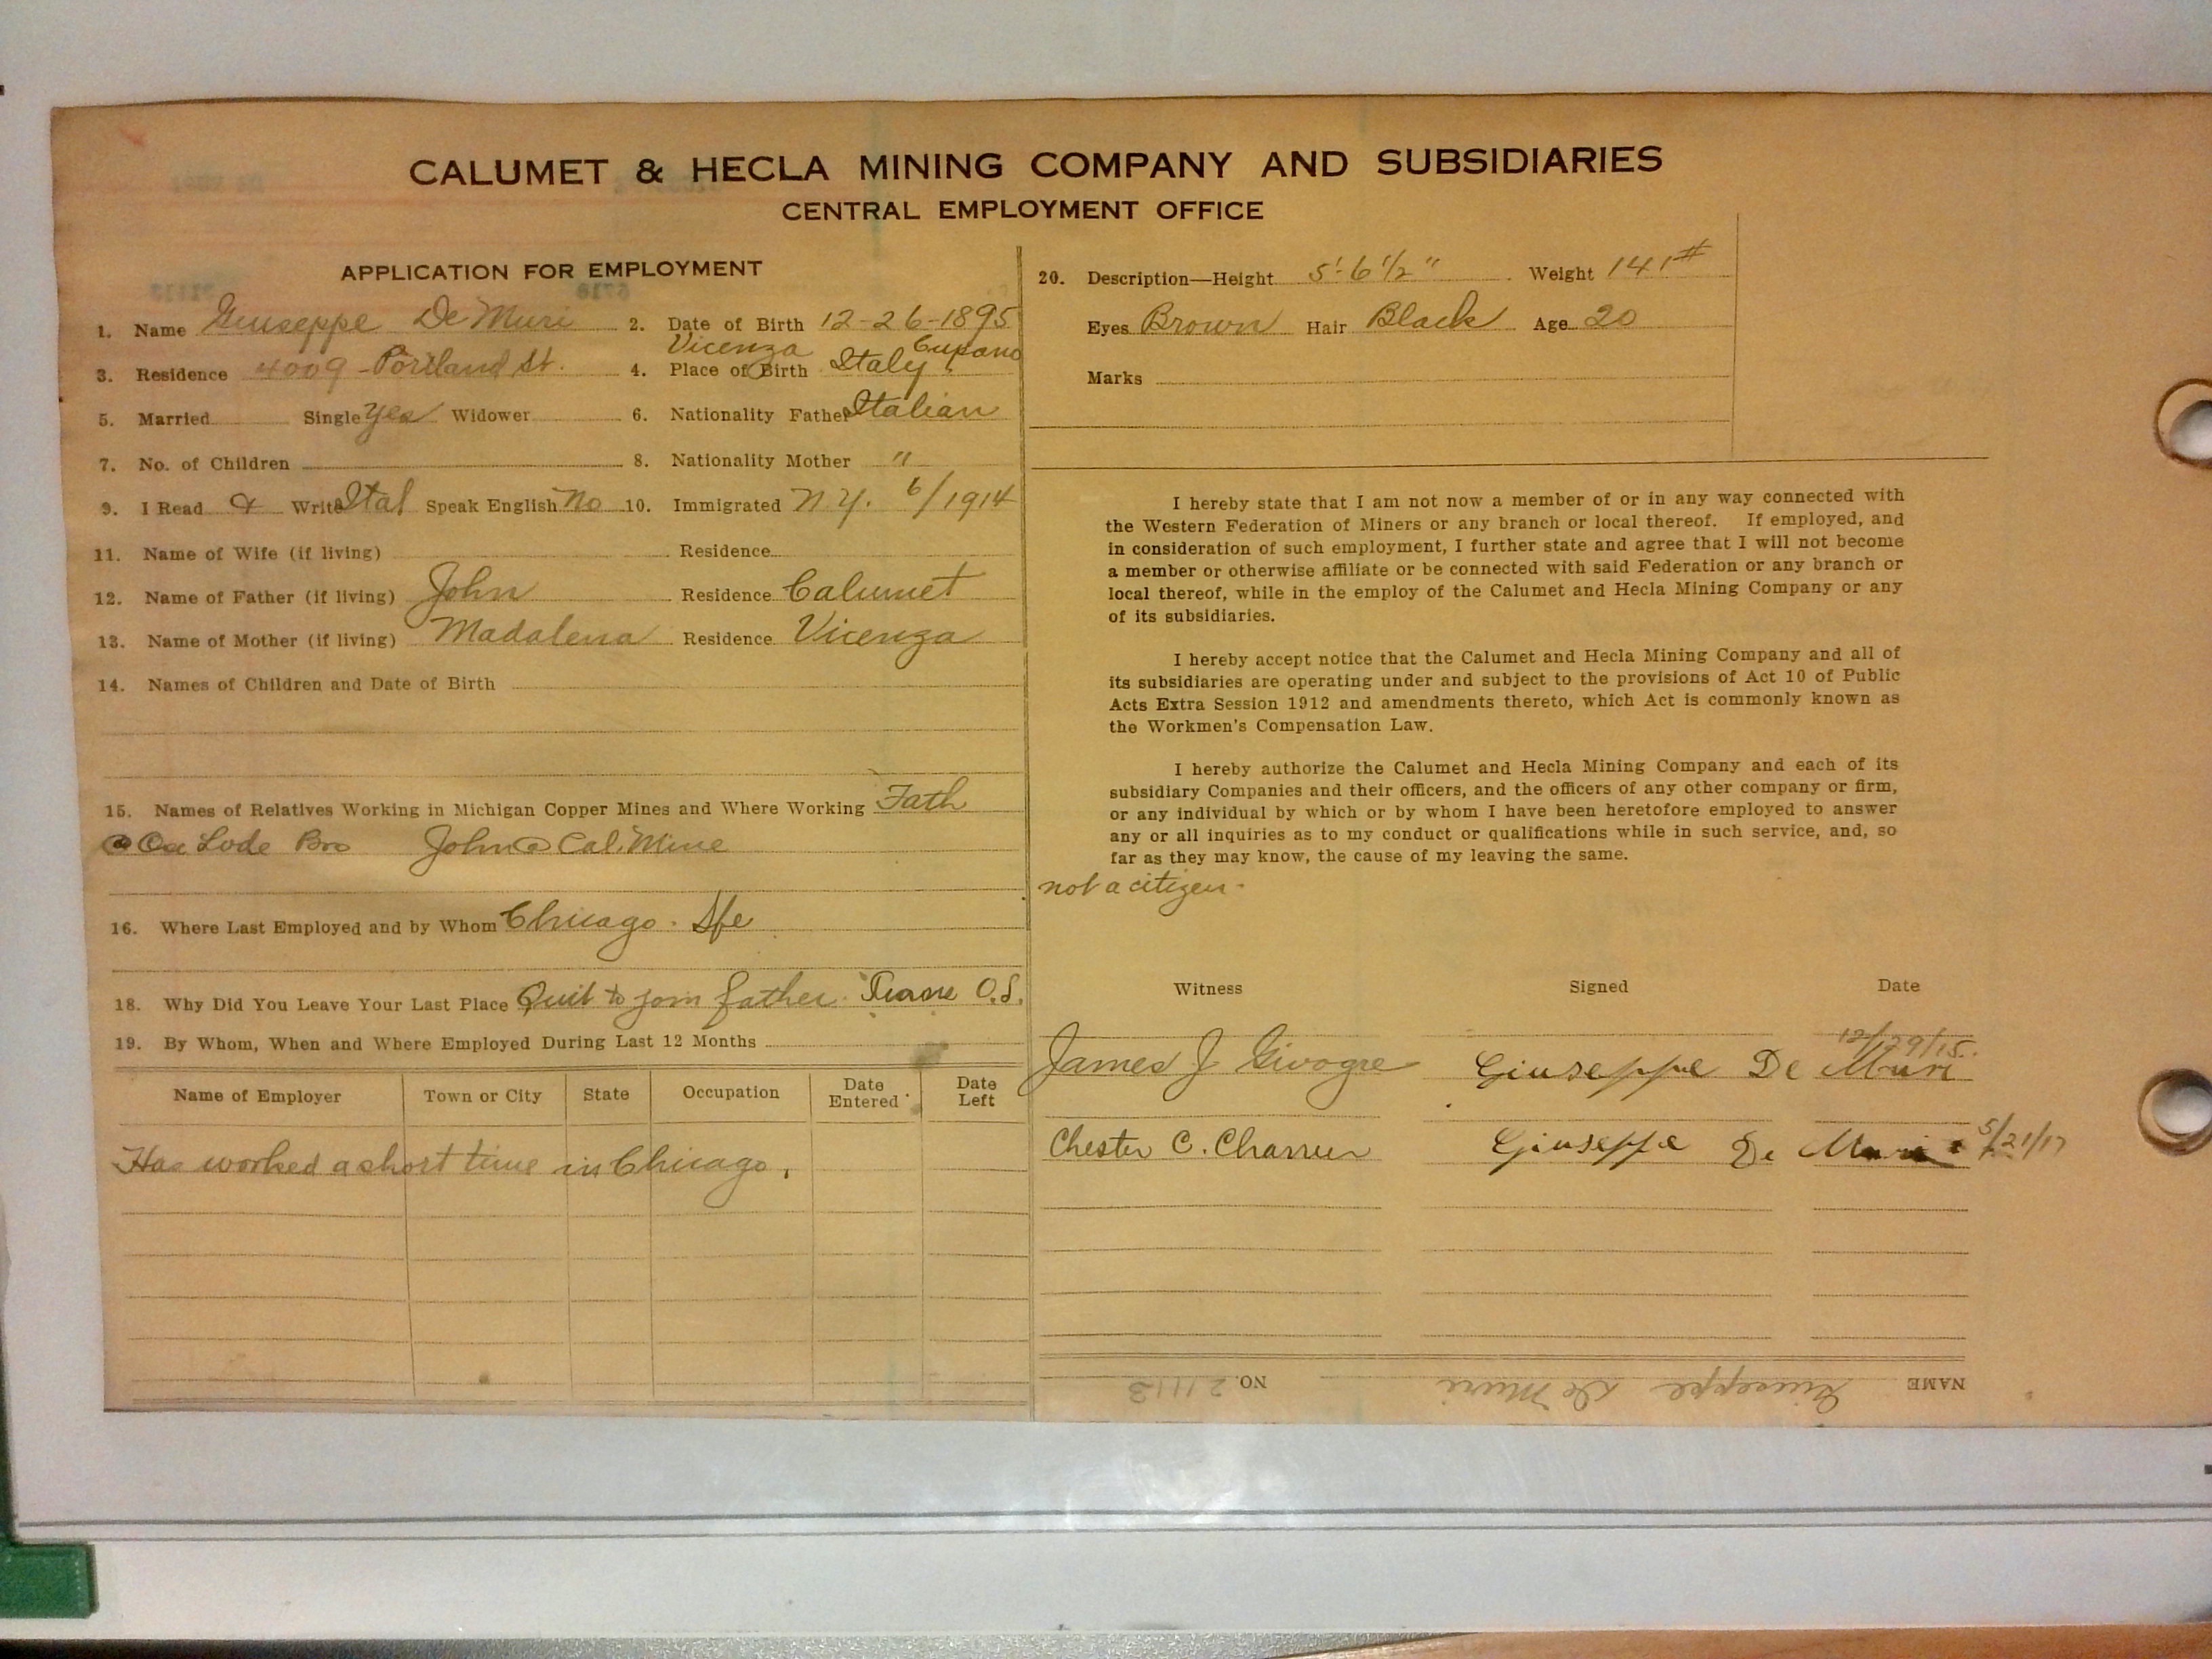 CALUMET & HECLA MINING COMPANY AND SUBSIDIARIES
CENTRAL EMPLOYMENT OFFICE
APPLICATION FOR EMPLOYMENT
1. Name Giuseppe De Muri 2. Date of Birth 12-26-1895
Vicenza
3. Residence 4009 - Portland St. 4. Place of Birth Italy
5. Married Single yes Widower 6. Nationality Father Italian
7. No. of Children 8. Nationality Mother "
9. I Read & Write Ital Speak English No 10. Immigrated N.Y. 6/1914
11. Name of Wife (if living) Residence
12. Name of Father (if living) John Residence Calumet
13. Name of Mother (if living) Madalena Residence Vicenza
14. Names of Children and Date of Birth
15. Names of Relatives Working in Michigan Copper Mines and Where Working Fath
@ Os Lode Bro John @ Cal. Mine
16. Where Last Employed and by Whom Chicago.
18. Why Did You Leave Your Last Place Quit to join father. O.S.
19. By Whom, When and Where Employed During Last 12 Months
Name of Employer Town or City State Occupation Date Entered Date Left
Has worked a short time in Chicago.
20. Description—Height 5'-6 1/2" Weight 141#
Eyes Brown Hair Black Age 20
Marks
I hereby state that I am not now a member of or in any way connected with
the Western Federation of Miners or any branch or local thereof. If employed, and
in consideration of such employment, I further state and agree that I will not become
a member or otherwise affiliate or be connected with said Federation or any branch or
local thereof, while in the employ of the Calumet and Hecla Mining Company or any
of its subsidiaries.
I hereby accept notice that the Calumet and Hecla Mining Company and all of
its subsidiaries are operating under and subject to the provisions of Act 10 of Public
Acts Extra Session 1912 and amendments thereto, which Act is commonly known as
the Workmen's Compensation Law.
I hereby authorize the Calumet and Hecla Mining Company and each of its
subsidiary Companies and their officers, and the officers of any other company or firm,
or any individual by which or by whom I have been heretofore employed to answer
any or all inquiries as to my conduct or qualifications while in such service, and, so
far as they may know, the cause of my leaving the same.
not a citizen.
Witness Signed Date
12/29/15.
James J Giuseppe De Muri
Chester C. Giuseppe De Muri 5/21/17
NAME Giuseppe De Muri NO. 21113